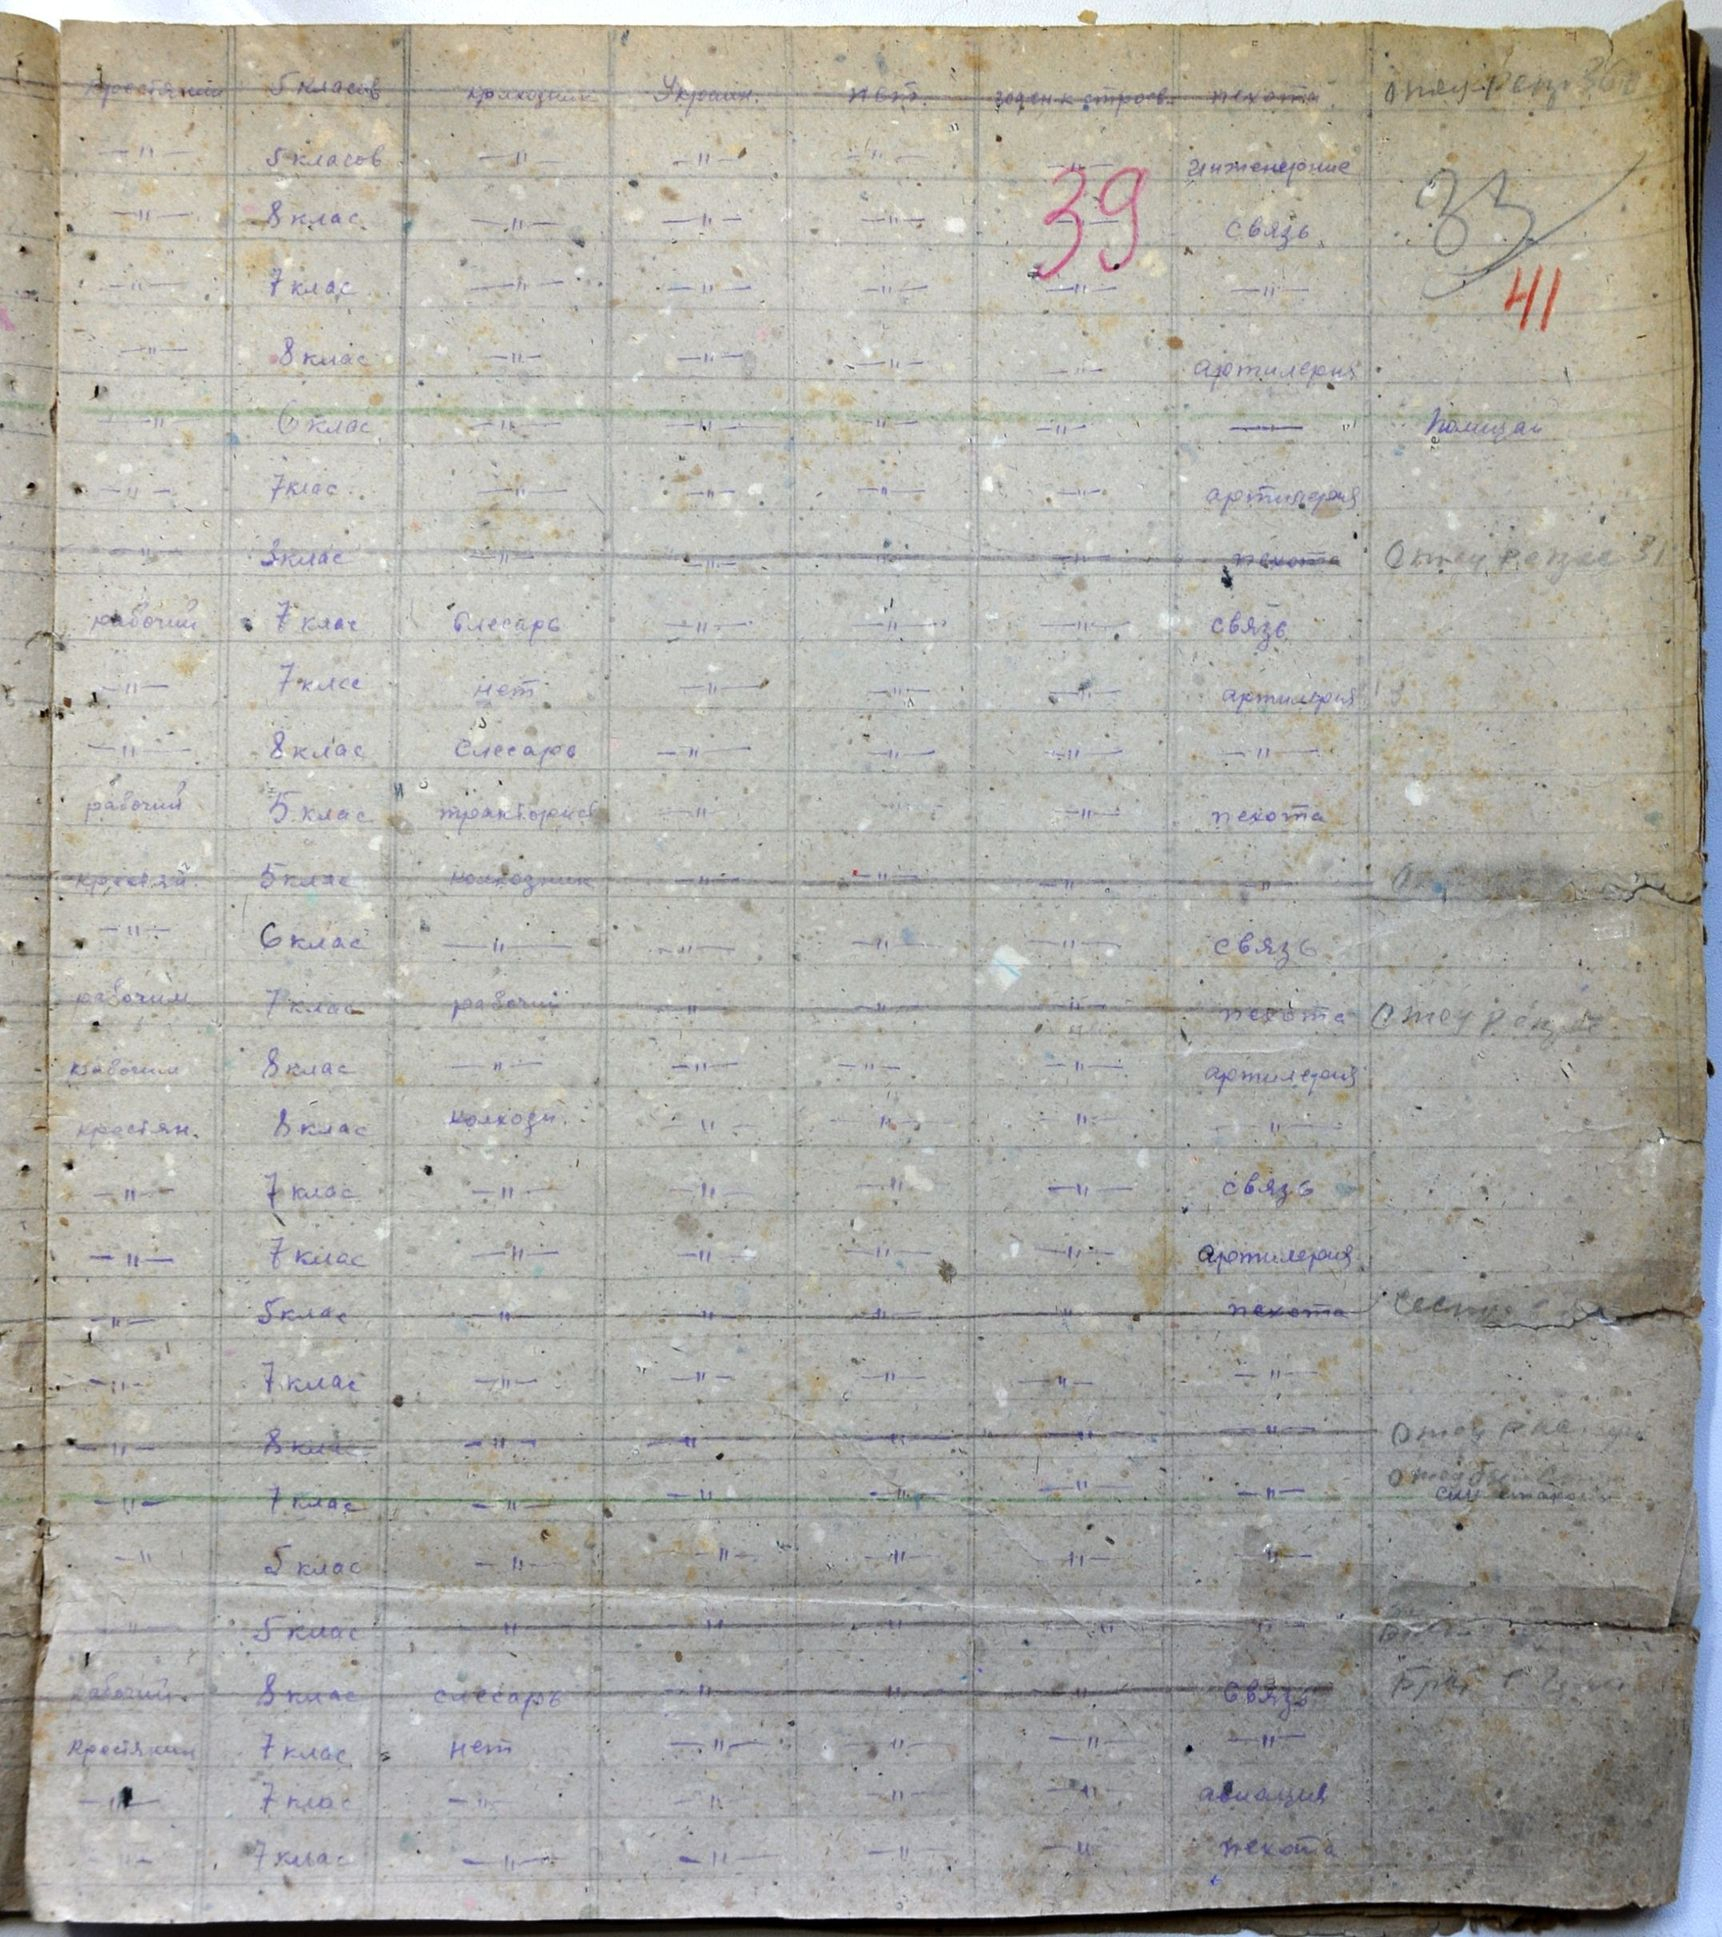 крестянин 5 класов колхозник Украин. нет. годен к строев. пехота
—"— 5 класов —"— —"— —"— —"— инженерние
39 33
—"— 8 клас —"— —"— —"— —"— связь
—"— 7 клас —"— —"— —"— —"— —"—
41
—"— 8 клас —"— —"— —"— —"— артилерия
—"— 6 клас —"— —"— —"— —"— —— Полицай
—"— 7 клас —"— —"— —"— —"— артилерия
—"— 3 клас —"— —"— —"— —"— пехота Отец 31
рабочий 7 клас Слесарь —"— —"— —"— связь
—"— 7 клас нет —"— —"— —"— артилерия
—"— 8 клас Слесарь —"— —"— —"— —"—
рабочий 5 клас тракторист —"— —"— пехота
5 клас колходник —"— —"— —"— —"—
—"— 6 клас —"— —"— —"— —"— связь
рабочий 7 клас рабочий —"— —"— —"— пехота Отец
рабочий 8 клас —"— —"— —"— —"— артилерия
крестян. 8 клас колхозн. —"— —"— —"— —"—
—"— 7 клас —"— —"— —"— —"— связь
—"— 7 клас —"— —"— —"— —"— артилерия
—"— 5 клас —"— —"— —"— —"— пехота
—"— 7 клас —"— —"— —"— —"— —"—
—"— 8 клас —"— —"— —"— —"— —"— Отец
—"— 7 клас —"— —"— —"— —"— —"—
—"— 5 клас —"— —"— —"— —"— —"—
—"— 5 клас —"— —"— —"— —"— —"—
рабочий 8 клас слесарь —"— —"— —"— связь Брат
крестянин 7 клас нет —"— —"— —"— —"—
—"— 7 клас —"— —"— —"— —"— авиация
—"— 7 клас —"— —"— —"— —"— пехота